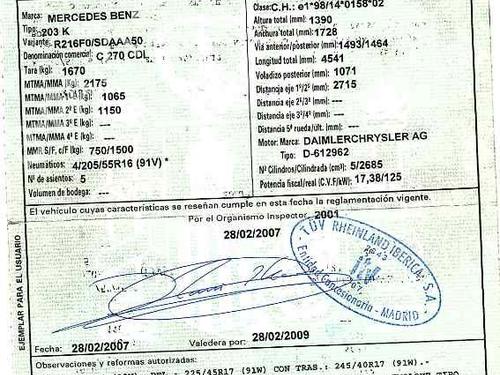 Marca: MERCEDES BENZ
Tipo: 203 K
Variante: R216F0/SDAAA50
Denominación comercial: C 270 CDI
Tara (kg): 1670
MTMA/MMA (kg): 2175
MTMA/MMA 1º E (kg): 1065
MTMA/MMA 2º E (kg): 1150
MTMA/MMA 3º E (kg): ---
MTMA/MMA 4º E (kg): ---
MMR S/F, c/F (kg): 750/1500
Neumáticos: 4/205/55R16 (91V) *
Nº de asientos: 5
Volumen de bodega: ---
Clase: C.H.: e1*98/14*0158*02
Altura total (mm): 1390
Anchura total (mm): 1728
Vía anterior/posterior (mm): 1493/1464
Longitud total (mm): 4541
Voladizo posterior (mm): 1071
Distancia eje 1º/2º (mm): 2715
Distancia eje 2º/3º (mm): ---
Distancia eje 3º/4º (mm): ---
Distancia 5ª rueda/últ. (mm): ---
Motor: Marca: DAIMLERCHRYSLER AG
Tipo: D-612962
Nº Cilindros/Cilindrada (cm³): 5/2685
Potencia fiscal/real (C.V.F/kW): 17,38/125
El vehículo cuyas características se reseñan cumple en esta fecha la reglamentación vigente.
Por el Organismo Inspector, 2001
28/02/2007
TÜV RHEINLAND IBERICA, S.A.
Entidad Concesionaria - MADRID
EJEMPLAR PARA EL USUARIO
Fecha: 28/02/2007 Valedera por: 28/02/2009
Observaciones y reformas autorizadas:
225/45R17 (91W) CON TRAS.: 245/40R17 (91W).-